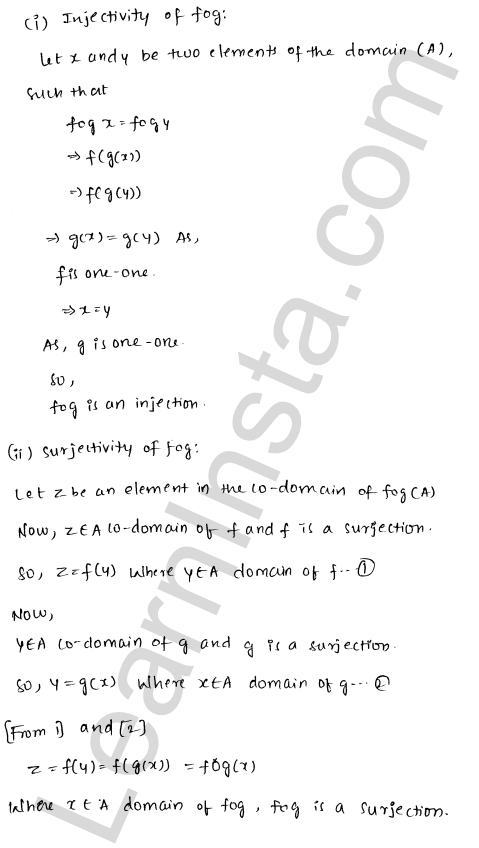 (i) Injectivity of fog:
Let x and y be two elements of the domain (A),
such that
fog x = fog y
⇒ f(g(x))
⇒ f(g(y))
⇒ g(x) = g(y) As,
f is one-one.
⇒ x = y
As, g is one-one.
so,
fog is an injection.
(ii) surjectivity of fog:
Let z be an element in the co-domain of fog (A)
Now, z∈A co-domain of f and f is a surjection.
so, z=f(y) where y∈A domain of f.. ①
Now,
y∈A co-domain of g and g is a surjection.
so, y = g(x) where x∈A domain of g... ②
[From 1] and [2]
z = f(y) = f(g(x)) = fog(x)
where x ∈ A domain of fog, fog is a surjection.
LearnInsta.com